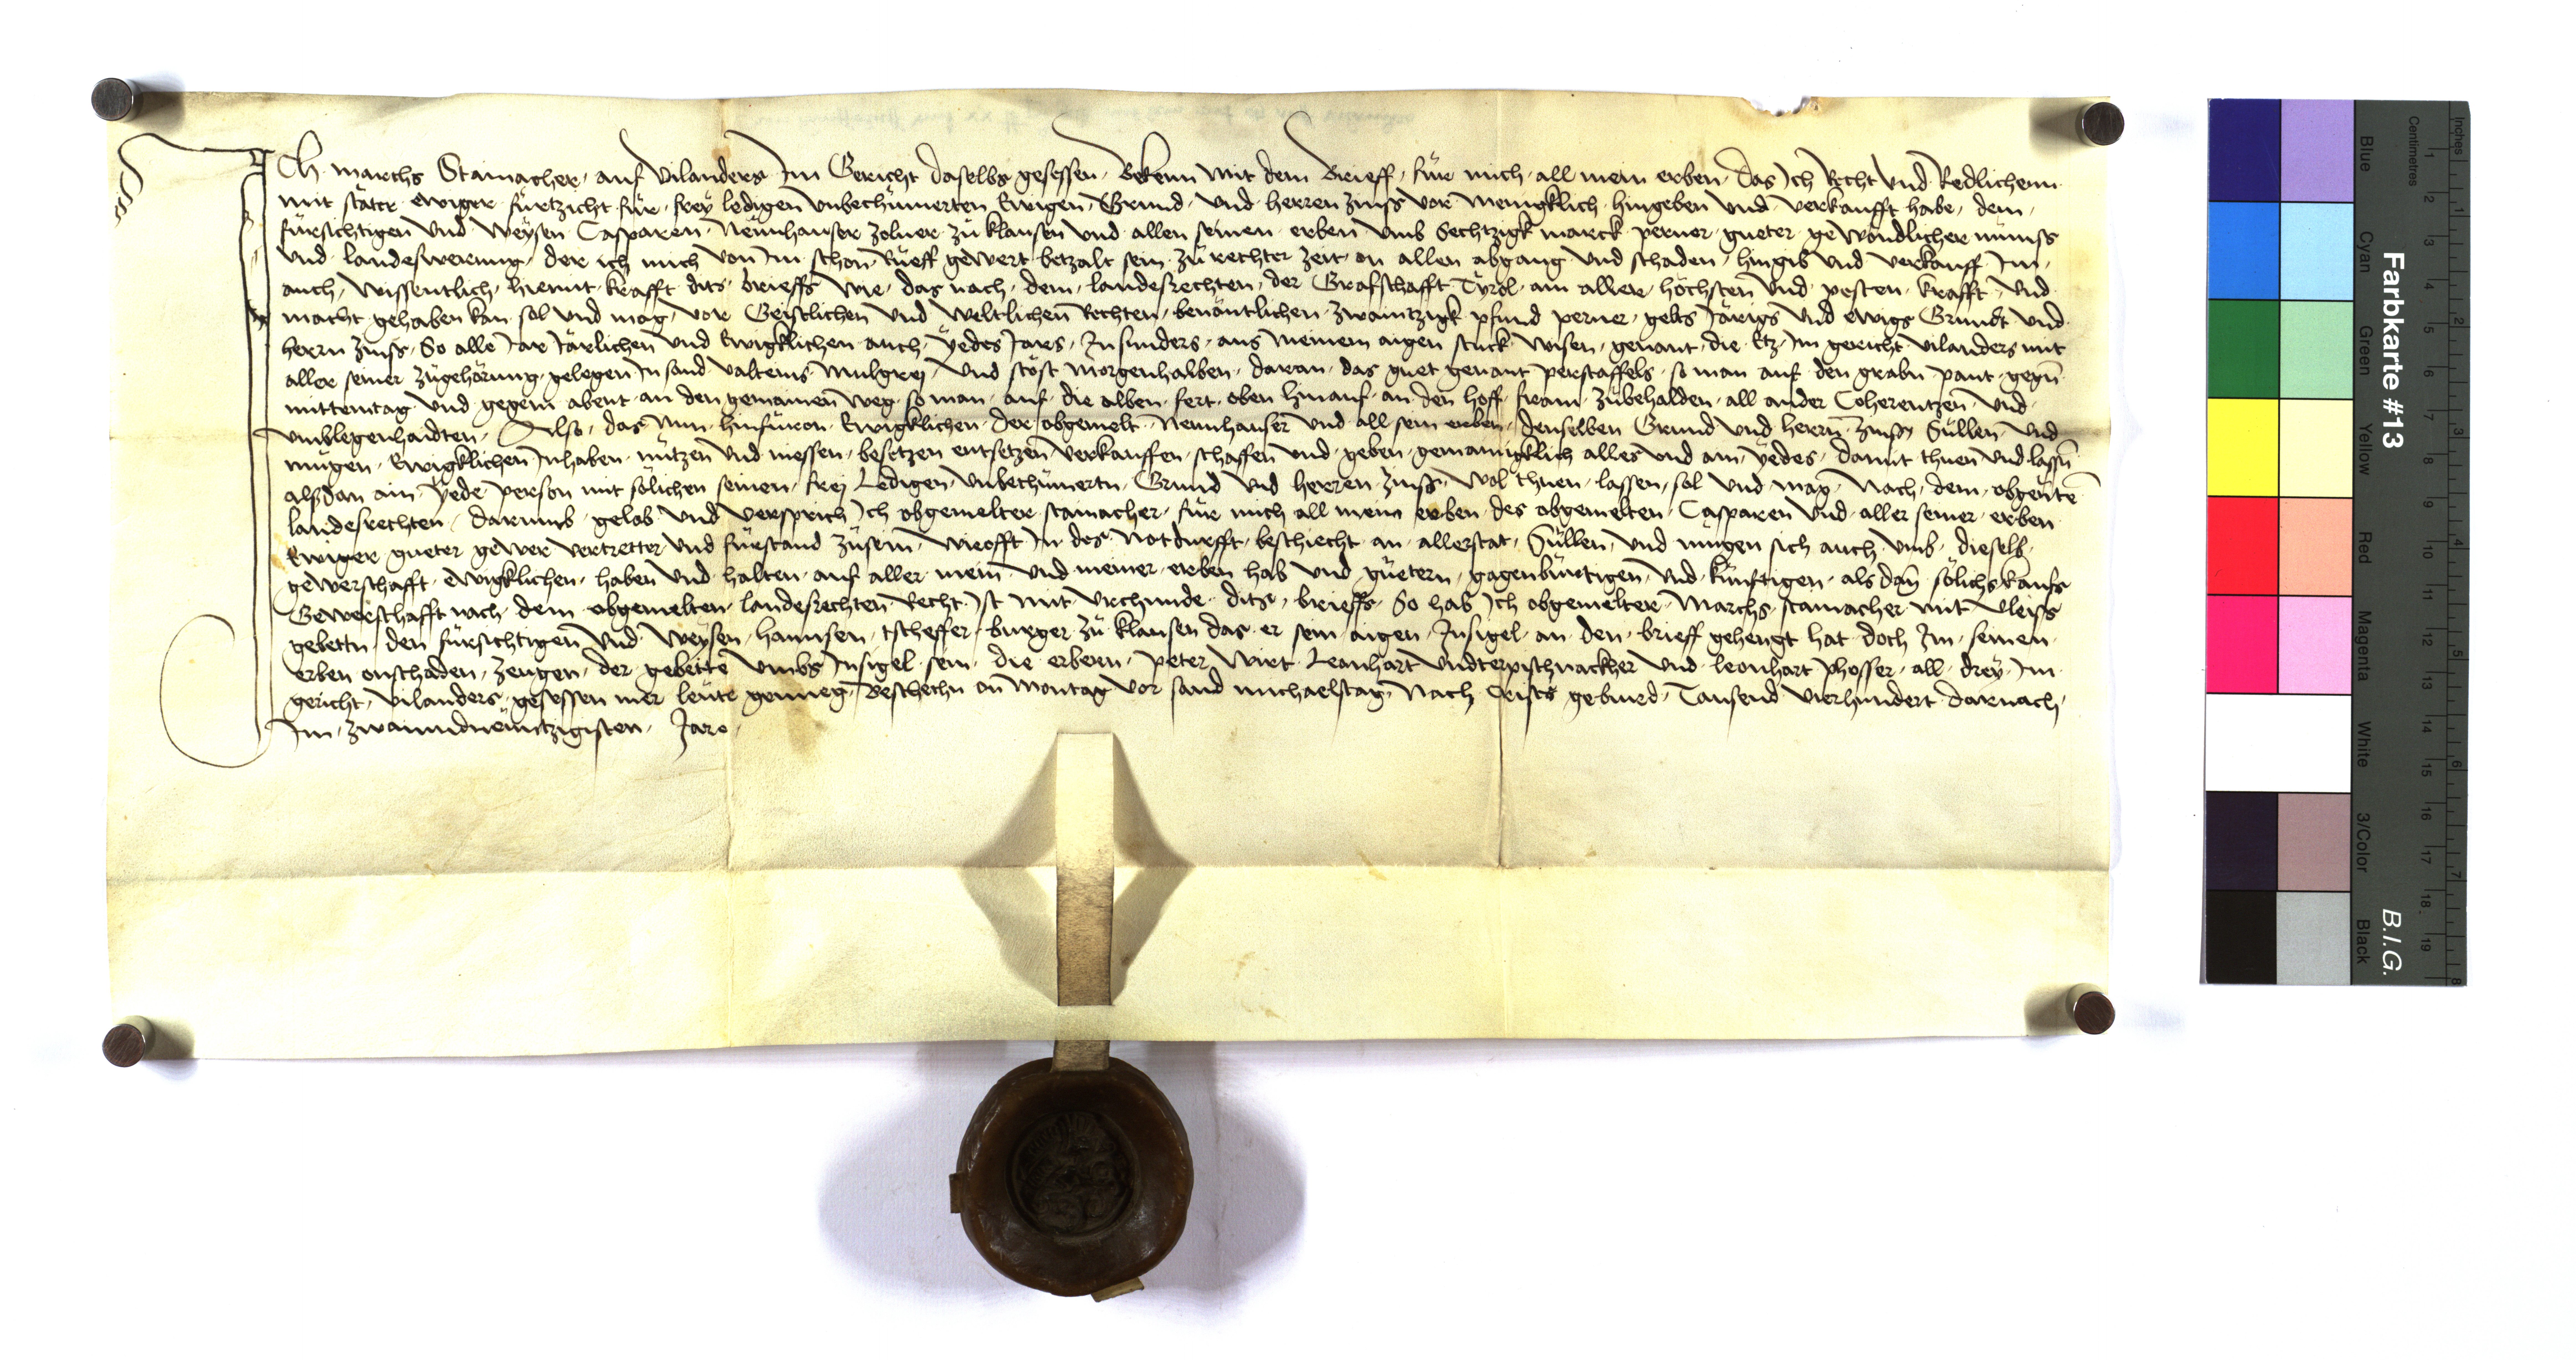 Ich marchs Stamacher auf vilanders Im Gericht daselbs gesessen Bekenn mit dem Brieff für mich all mein erben das Ich Recht vnd Redlichenn
mit stäter ewiger fürtzicht für frey ledigen vnbechümerten Ewigen Grund vnd herren zinss vor menigklich hingeben vnd verkaufft habe dem
fürsichtigen vnd Weysen Casparen Neunhauser zolner zu klausen vnd allen seinen erben vmb Sechtzigk marck perner gueter gewondlicher münss
vnd landeswerung der ich mich von Im schon Rueff gewert betzalt sein zu rechter zeit an allen abgang vnd schaden hingib vnd verkauff Im
auch wissentlich hiemit krafft dits brieffs wie das nach dem landesrechten der Grafschafft Tyrol am aller höchsten vnd pesten krafft vnd
macht gehaben kan sol vnd mag vor Geistlichen vnd weltlichen Rechten benäntlichen zwaintzigk pfund perner gelts Järigs vnd ewigs Grundt vnd
herrn zinss So alle Jar Järlichen vnd Ewigklichen auch yedes Jars Insunders aus meinem aigen stuck wisen genant die Etz Im gericht vilanders mit
aller seiner zugehörung gelegen In sand valteins Mulgrej vnd stöst morgenhalben daran das guet genant perstaffels so man auf den grabn pant gegn
mittemtag vnd gegem abent an den gemainen weg so man auf die alben fert oben hinauf an den hoff fram zubehalden all ander Coherentzen vnd
vmblegenhaidten Also das Nun hinfüron Ewigklichen der obgemelt Neunhauser vnd all sein erben denselben Grund vnd herrn zinss Süllen vnd
mügen Ewigklichen Inhaben nützen vnd niessen besetzen entsetzen verkauffen schaffen vnd geben gemainigklich alles vnd ain yedes damit thuen vnd lassn
alssdan ain yede person mit sölichen seinen frej Ledigen vnbechümertn Grund vnd herren zinss wol thuen lassen sol vnd mag Nach dem obgenten
landesrechten darumb gelob vnd versprich Ich obgemelter stamacher für mich all mein erben des obgemelten Casparen vnd aller seiner erben
Ewiger gueter gewer vertretter vnd fürstand zusein wieofft In des Notdurfft beschiecht an allerstat Süllen vnd mügen sich auch vmb dieselb
gewerschafft ewigklichen haben vnd halten auf aller mein vnd meiner erben hab vnd guetern gagenbürtigen vnd künftigen als dan sölichs kaufs
Gewerschafft nach dem obgemelten landesrechten Recht Ist mit vrchunde dits brieffs So hab Ich obgemelter Marchs stamacher mit vleiss
gebettn den fürsichtigen vnd weysen hannsen tscheffer burger zu klausen das er sein aigen Insigel an den brieff gehengt hat doch Im seinen
erben onschaden zeugen der gebette vmbs Insigel sein die erbern peter wirt Leonhart vndterpischnackher vnd leonhart phosser all drey Im
gericht vilanders gesessen mer leute genueg Beschechn an Montag vor sand michaelstag Nach Cristi gebürd Tausend vierhundert darnach
Im zwaiundneüntzigisten Jare
Farbkarte #13
B.I.G.
Centimetres
Inches
Blue
Cyan
Green
Yellow
Red
Magenta
White
3/Color
Black
1 2 3 4 5 6 7 8 9 10 11 12 13 14 15 16 17 18 19
1 2 3 4 5 6 7 8